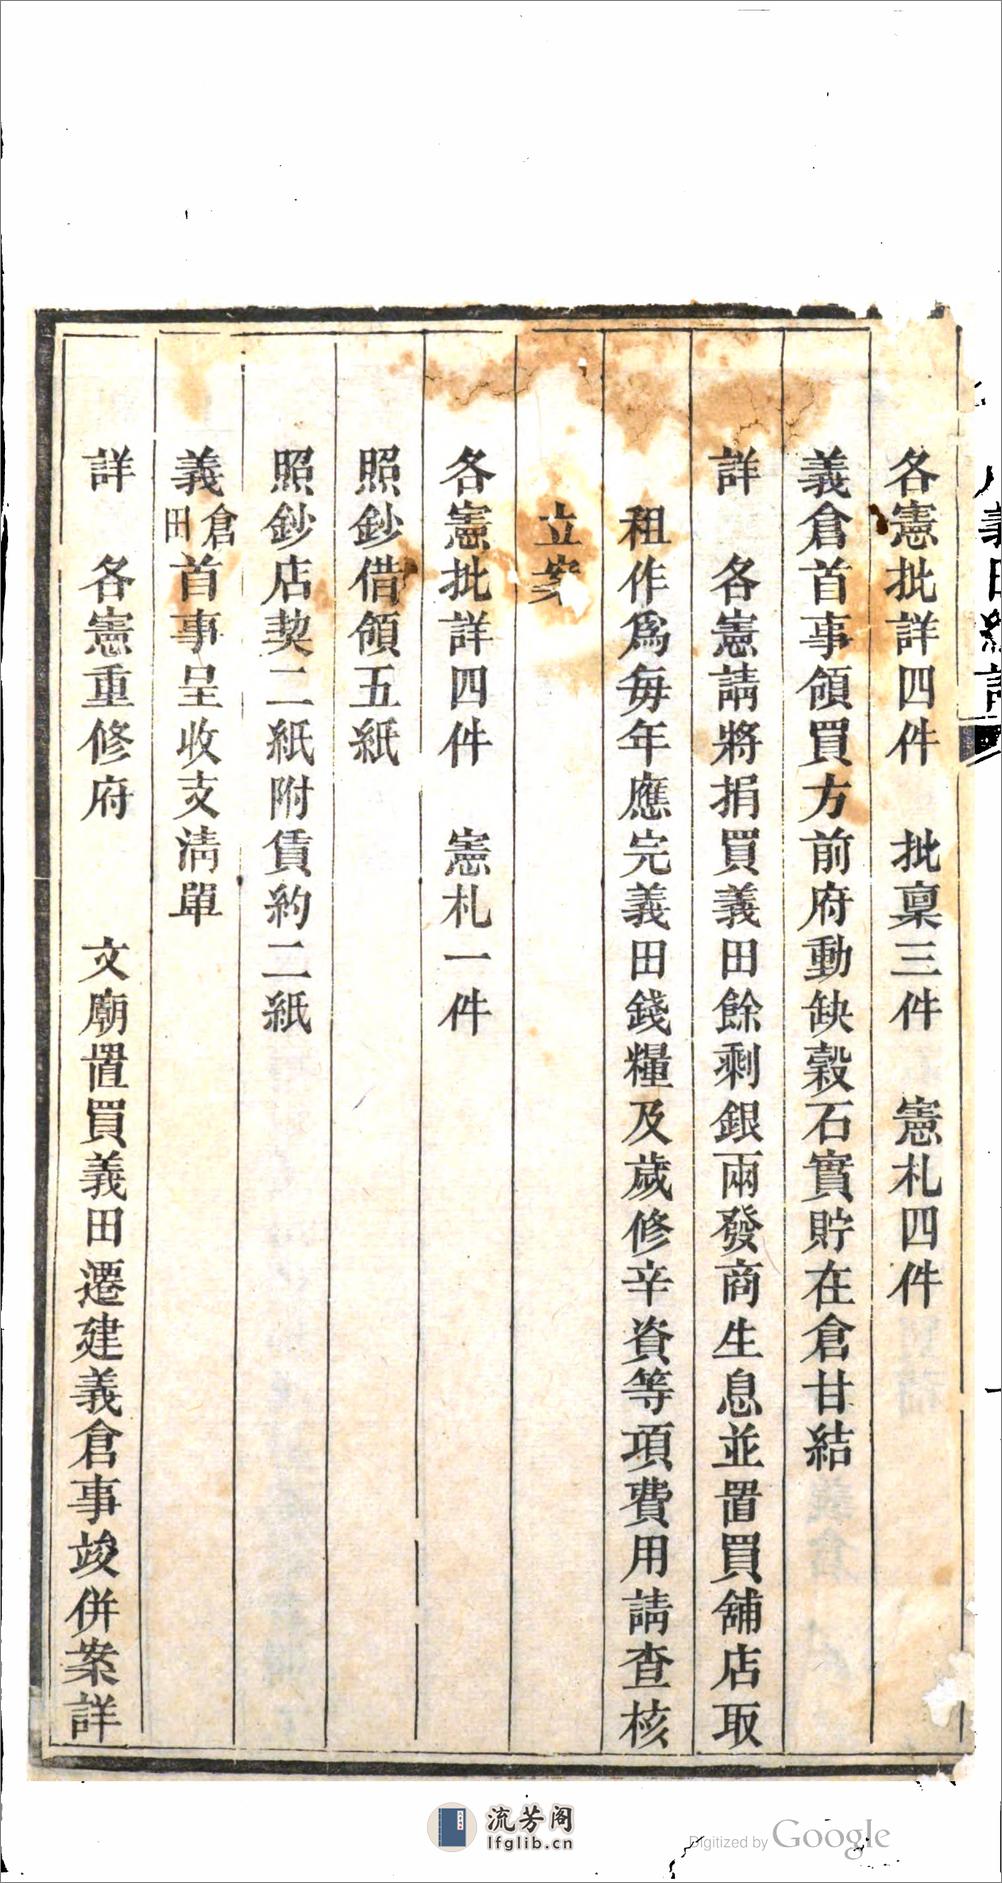 各憲批詳四件　批稟三件　憲札四件
義倉首事領買方前府動缺穀石實貯在倉甘結
詳　各憲請將捐買義田餘剩銀兩發商生息並置買舖店取
租作爲每年應完義田錢糧及歲修辛資等項費用請查核
立案
各憲批詳四件　憲札一件
照鈔借領五紙
照鈔店契二紙附賃約二紙
義倉田首事呈收支清單
詳　各憲重修府　　文廟置買義田遷建義倉事竣併案詳
義田
流芳阁
lfglib.cn
Digitized by Google